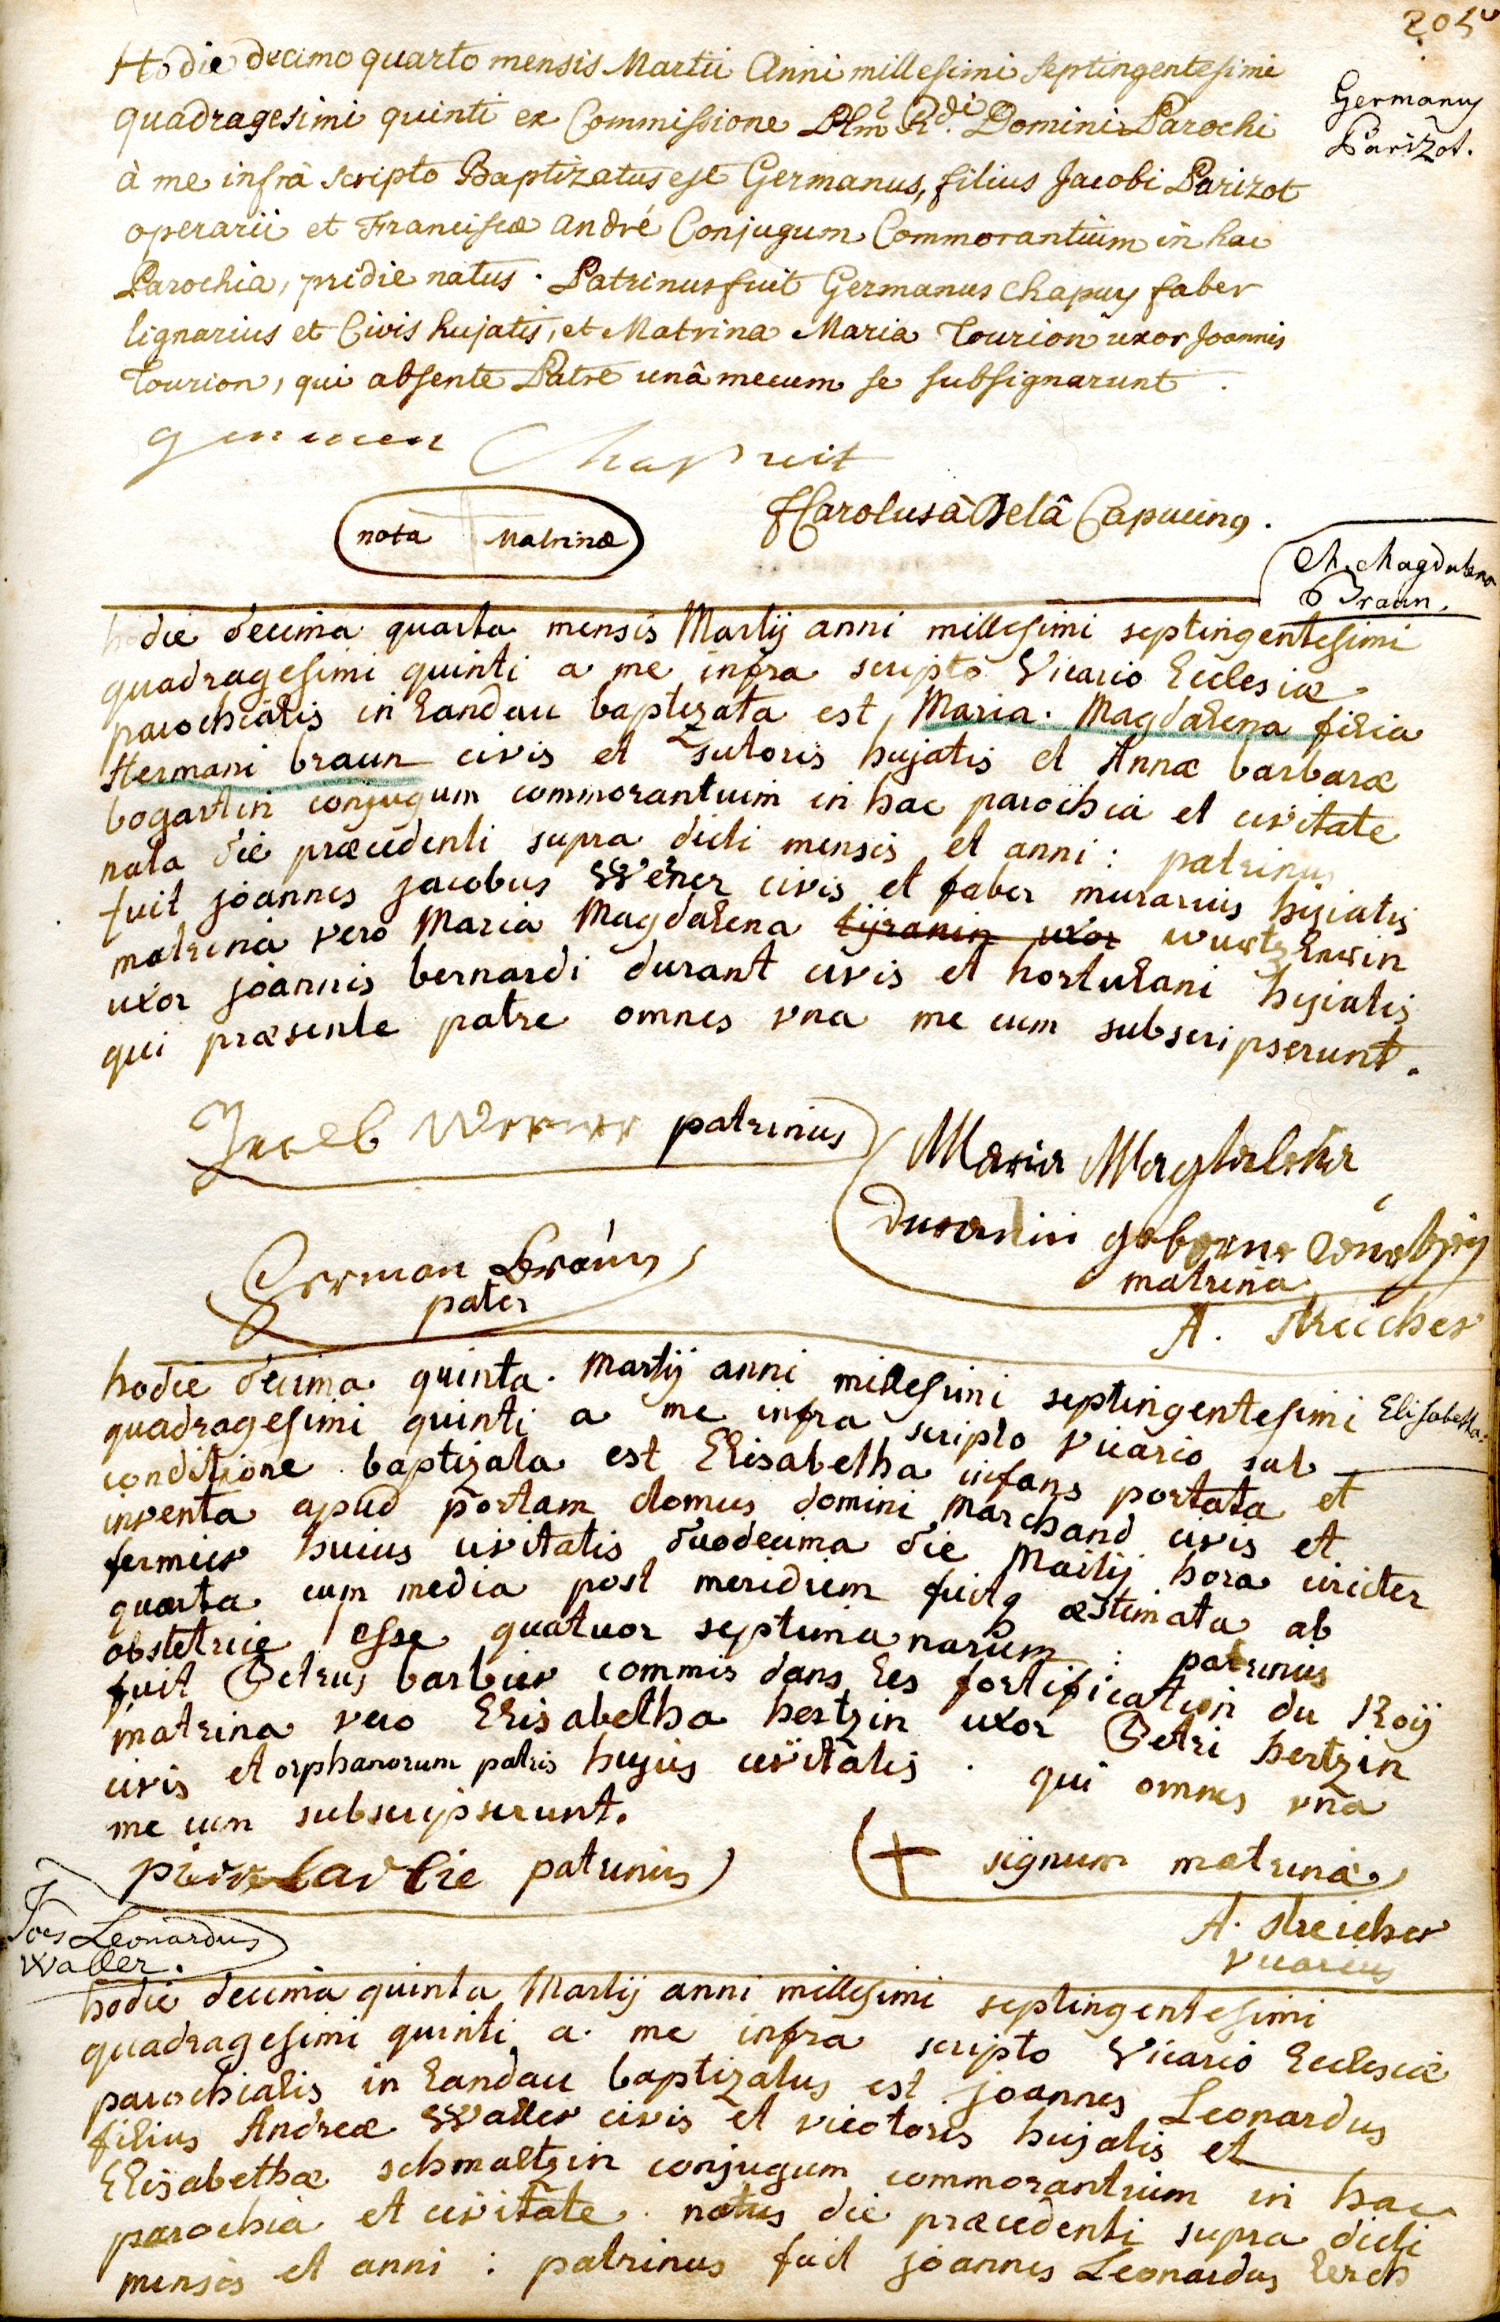 205
Germanus
Parizot.
Hodie decimo quarto mensis Martii Anni millesimi septingentesimi
quadragesimi quinti ex Commissione Plm. Rdi. Domini Parochi
à me infrà scripto Baptizatus est Germanus, filius Jacobi Parizot
operarii et Franciscæ andré Conjugum Commorantium in hac
Parochia, pridie natus. Patrinus fuit Germanus Chapuy faber
lignarius et Civis hujatis, et Matrina Maria Tourion uxor Joannis
Tourion, qui absente Patre unâ mecum se subsignarunt.
Chapuit
nota Matrinæ
f Carolus à Capucing.
M. Magdalena
Braun.
hodie decima quarta mensis Martij anni millesimi septingentesimi
quadragesimi quinti a me infra scripto Vicario Ecclesiæ
parochialis in Landau baptizata est, Maria. Magdalena filia
Hermani braun civis et sutoris hujatis et Annæ barbaræ
bogartin conjugum commorantium in hac parochia et civitate
nata die præcedenti supra dicti mensis et anni: patrinus
fuit joannes jacobus Werner civis et faber murarius hujatis
matrina vero Maria Magdalena tijranin uxor wurtzlnrin
uxor joannis bernardi durant civis et hortulani hujatis
qui præsente patre omnes vna me cum subscripserunt.
Jacob Werner patrinus
Maria Magdalena
Durandin geborne
matrina
Herman Braun
pater
A. Streicher
Elisabetha.
hodie decima quinta. Martij anni millesimi septingentesimi
quadragesimi quinti a me infra scripto vicario sub
conditione baptizata est Elisabetha infans portata et
inventa apud portam domus domini Marchand civis et
fermier huius civitatis duodecima die Martij hora circiter
quarta cum media post meridiem fuitq æstimata ab
obstetrice esse quatuor septimanarum: patrinus
fuit Petrus barbier commis dans les fortification du Roij
matrina vero Elisabetha hertzin uxor Petri hertzin
civis et orphanorum patris hujus civitatis. qui omnes vna
me cum subscripserunt.
patrinus
+ signum matrina
A. Streicher
vicarius
Joes Leonardus
Waller.
hodie decima quinta Martij anni millesimi septingentesimi
quadragesimi quinti a. me infra scripto Vicario Ecclesiæ
parochialis in Landau baptizatus est joannes Leonardus
filius Andreæ Waller civis et vietoris hujatis et
Elisabethæ schmaltzin conjugum commorantium in hac
parochia et civitate. natus die præcedenti supra dicti
mensis et anni: patrinus fuit joannes Leonardus Lerch